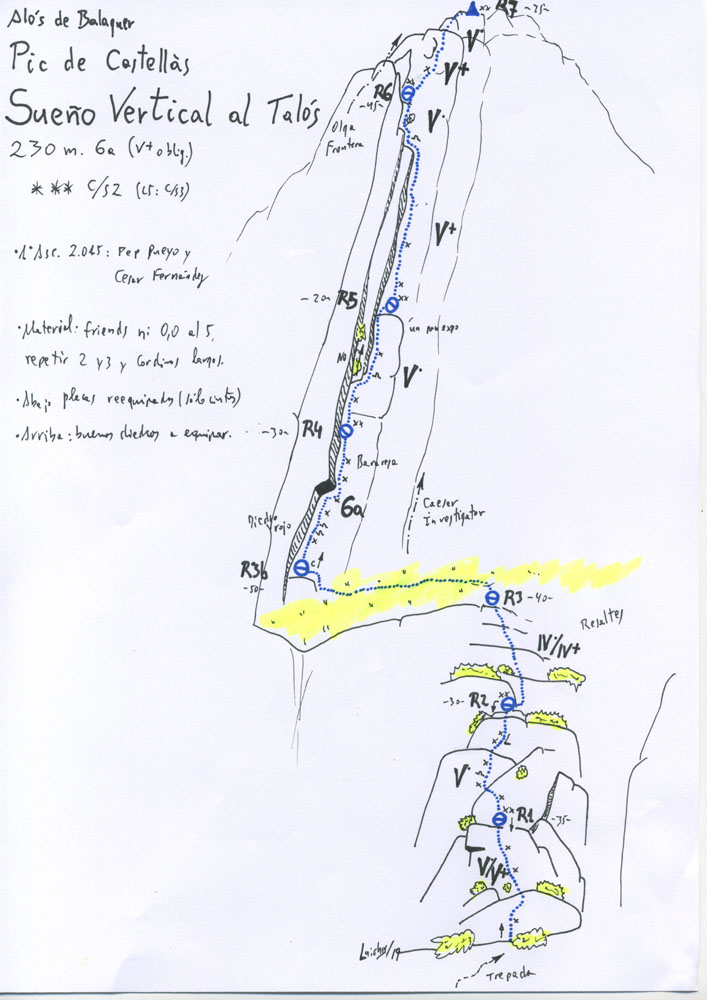 Alós de Balaguer
Pic de Castellàs
Sueño Vertical al Talós
230 m. 6a (V+ oblig.)
*** C/S2 (L5: C/S3)
·1ª Asc. 2.015: Pep Pueyo y
Cesar Fernández
·Material: friends ni 0,0 al 5,
repetir 2 y 3 y Cordinos largos.
·Abajo placas reequipadas (sólo cintos)
·Arriba: buenos diedros a equipar.
R7 -25-
V·
V+
R6
-45-
V·
Olga
Frontera
V+
R5
-20-
Un pou expo
No
V·
R4
-30-
Bavaresa
6a
Caesar
Investigator
Diedro
rojo
R3b
-50-
C
R3 -40-
Resaltes
IV·/IV+
R2
-30-
L
V·
R1
-35-
V·/V+
Luichy/19
Trepada